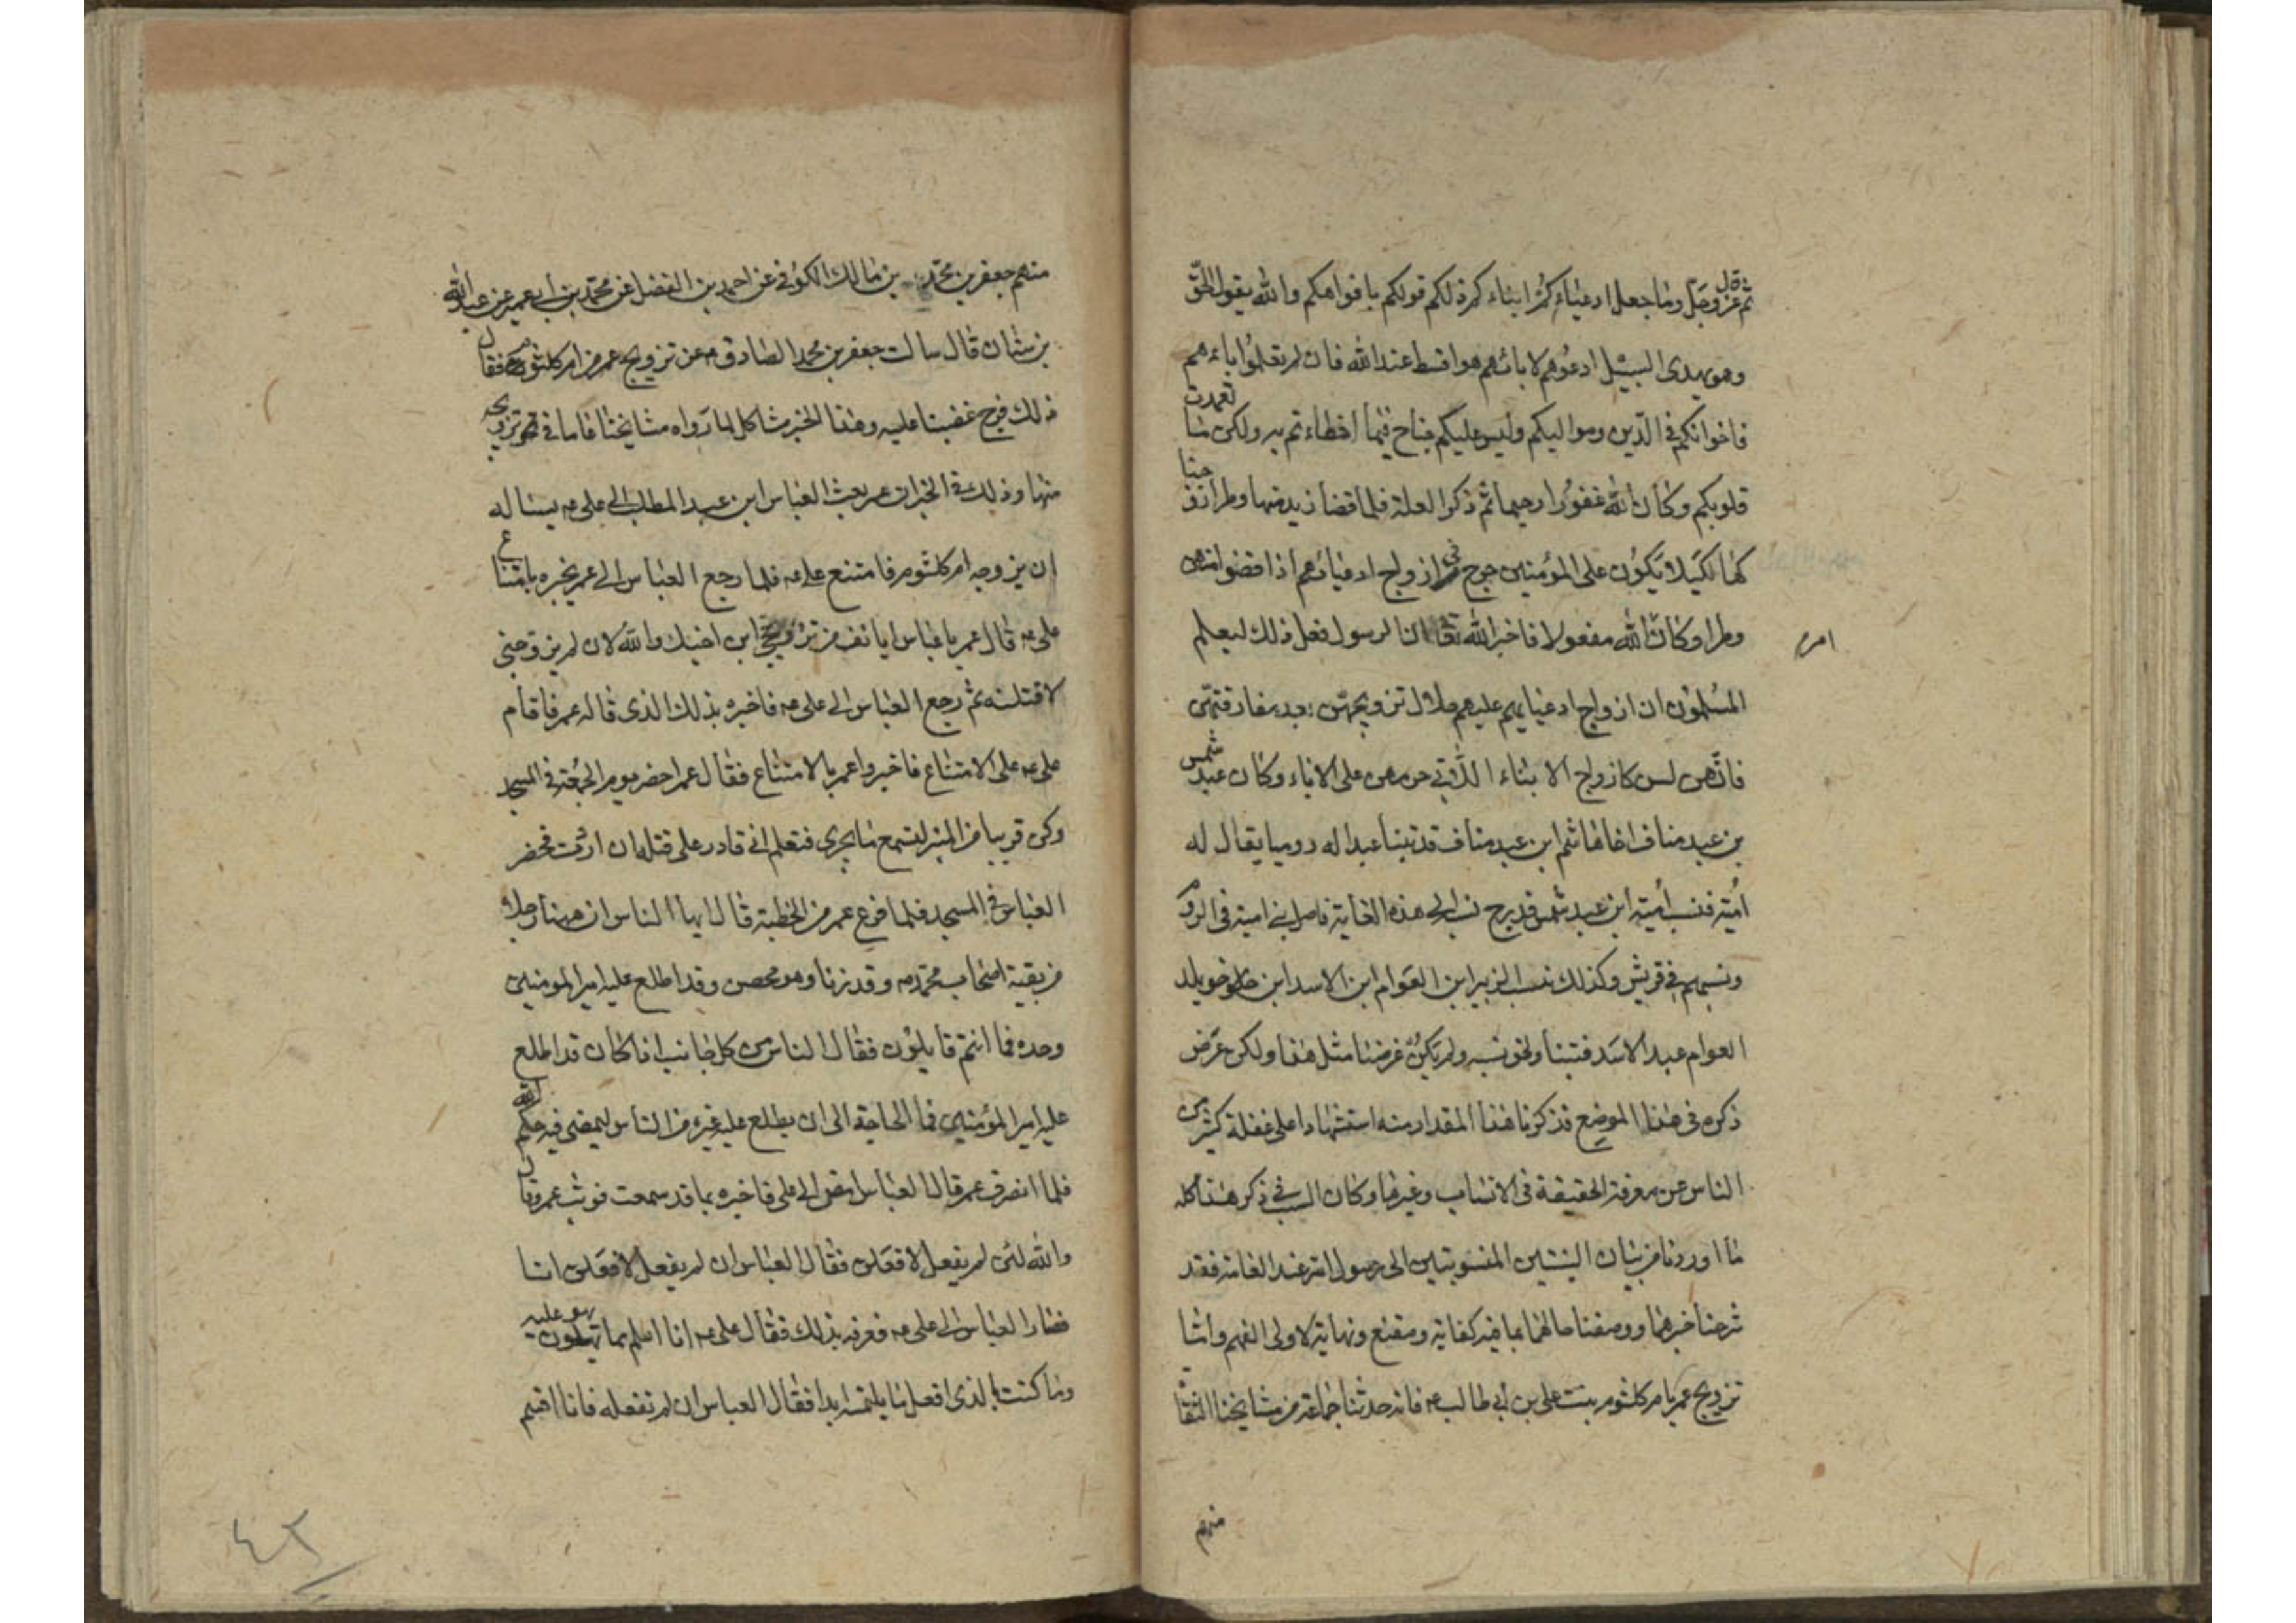 ثم قال عز وجل وما جعل ادعياءكم ابناءكم ذلكم قولكم بافواهكم والله يقول الحق
وهو يهدى السبيل ادعوهم لابائهم هو اقسط عند الله فان لم تعلموا اباءهم
فاخوانكم فى الدين ومواليكم وليس عليكم جناح فيما اخطاءتم به ولكن ما تعمدت
قلوبكم وكان الله غفورا رحيما ثم ذكر العلة فلما قضا زيد منها وطرا زوجنا
كها لكيلا يكون على المؤمنين حرج فى ازواج ادعيائهم اذا قضوا منهن
وطرا وكان الله مفعولا فاخبر الله تعا ان الرسول فعل ذلك ليعلم
امر
المسلمون ان ازواج ادعيايهم عليهم حلال تزويجهن بعد مفارقتهن
فانهن لسن كازواج الابناء اللاتى حرمهن على الاباء وكان عبد شمس
بن عبد مناف اخا هاشم ابن عبد مناف قد تبنا عبدا له روميا يقال له
امية فنسب امية ابن عبد شمس قدرج نسب الى هذه الغاية فاصل بنى امية فى الروم
ونسبهم فى قريش وكذلك نسب الزبير ابن العوام ابن الاسد ابن خويلد
العوام عبد الاسد فتبنا ولخو نسبه ولم يكن غرضنا مثل هذا ولكن عرض
ذكره فى هذا الموضع فذكرنا هذا المقدار منه استشهادا على غفلة كثير من
الناس عن معرفة الحقيقة فى الانساب وغيرها وكان السبب فى ذكر هذا كله
ما اوردنا من بيان البنتين المنسوبتين الى رسول الله عند العامة فقد
شرحنا خبرهما ووصفنا حالهما بما فيه كفاية ومقنع ونهاية لاولى الفهم واما
تزويج عمر بام كلثوم بنت على بن ابى طالب عم فانه حدثنا جماعة من مشايخنا الثقا
منهم
منهم جعفر بن محمد بن مالك الكوفى عن احمد بن الفضل عن محمد بن ابى عمير عن عبد الله
بن سنان قال سالت جعفر بن محمد الصادق عم عن تزويج عمر من ام كلثوم فقال
ذلك فرج غصبنا عليه وهذا الخبر مشاكل لما رواه مشايخنا عاما فى تزويجه
منها وذلك فى الخبر ان عمر بعث العباس ابن عبد المطلب الى على عم يساله
ان يزوجه ام كلثوم فامتنع على عم فلما رجع العباس الى عمر يخبره بامتناع
على عم قال عمر يا عباس ايانف من تزويجى ابن اخيك والله لان لم يزوجنى
لاقتلنه ثم رجع العباس الى على عم فاخبره بذلك الذى قاله عمر فاقام
على عم على الامتناع فاخبروا عمر بالامتناع فقال عمر احضر يوم الجمعة فى المسجد
وكن قريبا من المنبر لتسمع ما يجرى فتعلم انى قادر على قتله ان اردت فحضر
العباس فى المسجد فلما فرغ عمر من الخطبة قال ايها الناس ان ههنا رجلا
من بقية اصحاب محمد وقد زنا وهو محصن وقد اطلع عليه امير المومنين
وحده فما انتم قايلون فقال الناس من كل جانب اذا كان قد اطلع
عليه امير المؤمنين فما الحاجة الى ان يطلع عليه غيره من الناس ليمضى فيه حكم الله
فلما انصرف عمر قال العباس امض الى على فاخبره بما قد سمعت فوثب عمر وقال
والله لئن لم يفعل لافعلن فقال العباس ان لم يفعل لافعلن انا
فصار العباس الى على عم فعرفه بذلك فقال على عم انا اعلم بما يهو عليه
وما كنت بالذى افعل ما يلتمسه ابدا فقال العباس ان لم تفعله فانا اقسم
٤٢